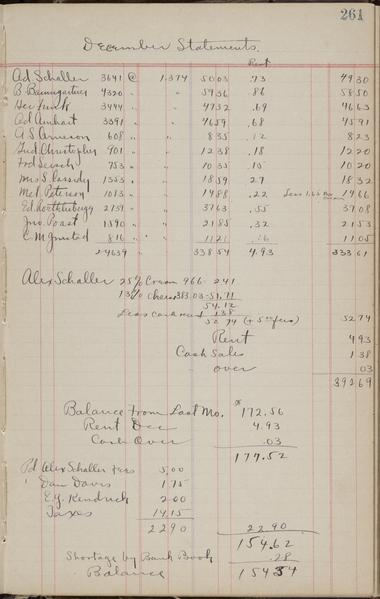 261
December Statements.
Rent
Ad Schaller 3641 @ 1.374 50 03 .73 49 30
B. Baumgartner 4320 " " 59 36 .86 58 50
Her Funk 3444 " " 47 32 .69 46 63
Ad Amhart 3391 " " 46 59 .68 45 91
A S Arneson 608 " " 8 35 .12 8 23
Fred Christopher 901 " " 12 38 .18 12 20
753 " " 10 35 .15 10 20
Mrs S. Cassidy 1353 " " 18 59 .27 18 32
Met Peterson 1013 " " 14 88 .22 14 66
Ed 2739 " " 37 63 .55 37 08
Jno. Poast 1590 " " 21 85 .32 21 53
C. M. 816 " " 11 21 .16 11 05
24639 338 54 4.93 333 61
Alex Schaller 25% Cream 966 - 241
13% Cheese 383.03 - 51.71
54.12
Less cash 1.38
52 74 (+ 5 00 fees) 52 74
Rent 4 93
Cash Sales 1 38
over 03
392 69
Balance from Last Mo. $ 172.56
Rent Dec 4.93
Cash Over .03
177.52
Pd Alex Schaller Fees 5.00
" Dan Davis 1.75
E. G. Kendrick 2.00
Taxes 14.15
22 90 22 90
154.62
Shortage by Bank Book .28
Balance 154 34